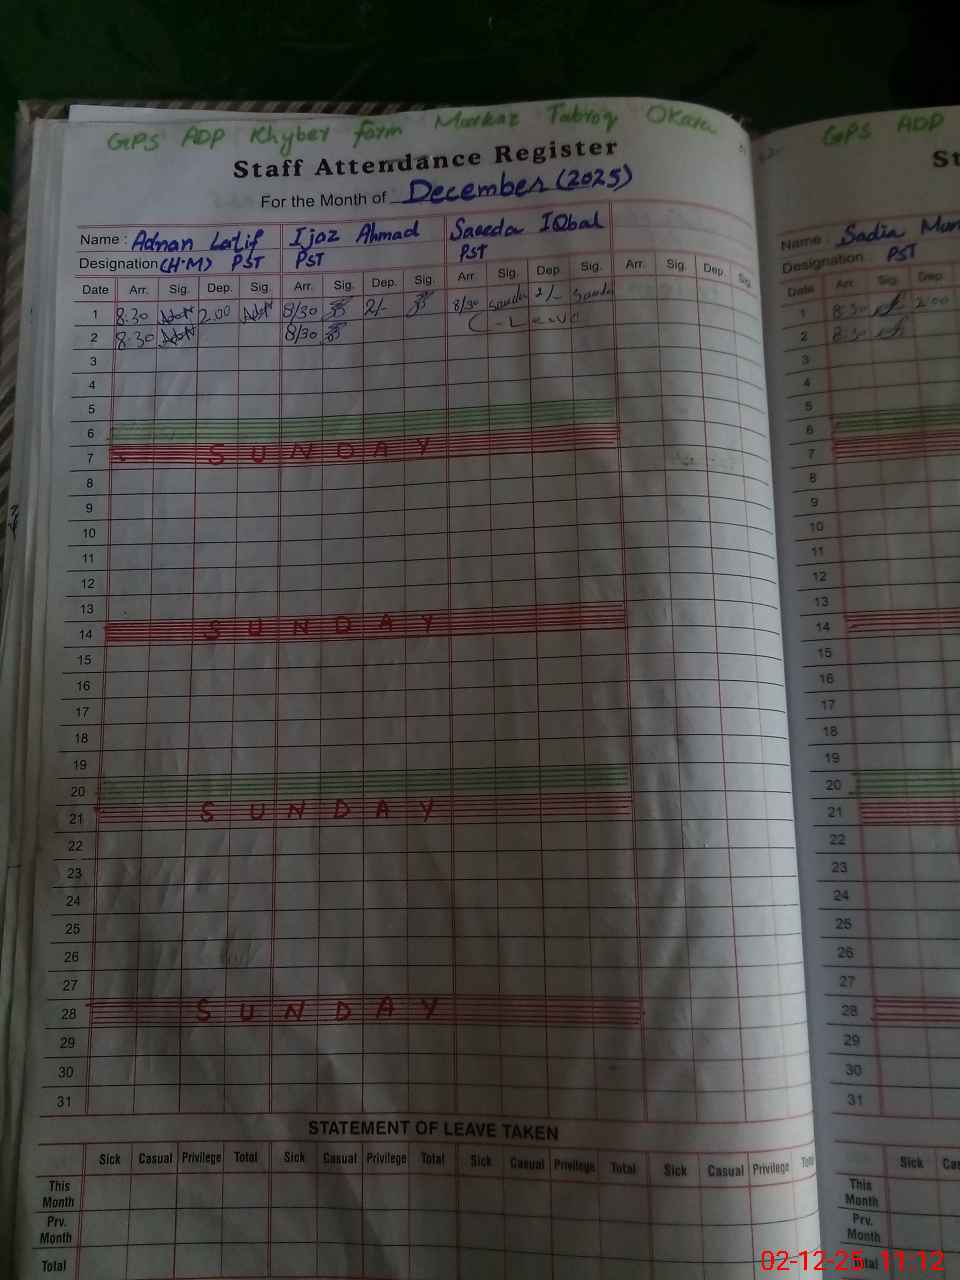 GPS ADP Khyber farm Markaz Tabroq Okara
Staff Attendance Register
For the Month of December (2025)
Name : Adnan Latif Ijaz Ahmad Saeeda IQbal
Designation (H.M) PST PST PST
Date Arr. Sig. Dep. Sig. Arr. Sig. Dep. Sig. Arr. Sig. Dep. Sig. Arr. Sig. Dep. Sig.
1 8:30 2:00 8/30 2/- 8/30 Saeeda 2/- Saeeda
2 8:30 8/30 C-Leave
3
4
5
6
7 SUNDAY
8
9
10
11
12
13
14 SUNDAY
15
16
17
18
19
20
21 SUNDAY
22
23
24
25
26
27
28 SUNDAY
29
30
31
STATEMENT OF LEAVE TAKEN
Sick Casual Privilege Total Sick Casual Privilege Total Sick Casual Privilege Total Sick Casual Privilege
This Month
Prv. Month
Total
GPS ADP
St
Name : Sadia
Designation PST
Date Arr. Sig. Dep.
1 8:30 2:00
2 8:30
3
4
5
6
7
8
9
10
11
12
13
14
15
16
17
18
19
20
21
22
23
24
25
26
27
28
29
30
31
Sick Cas
This Month
Prv. Month
Total
02-12-25 11:12